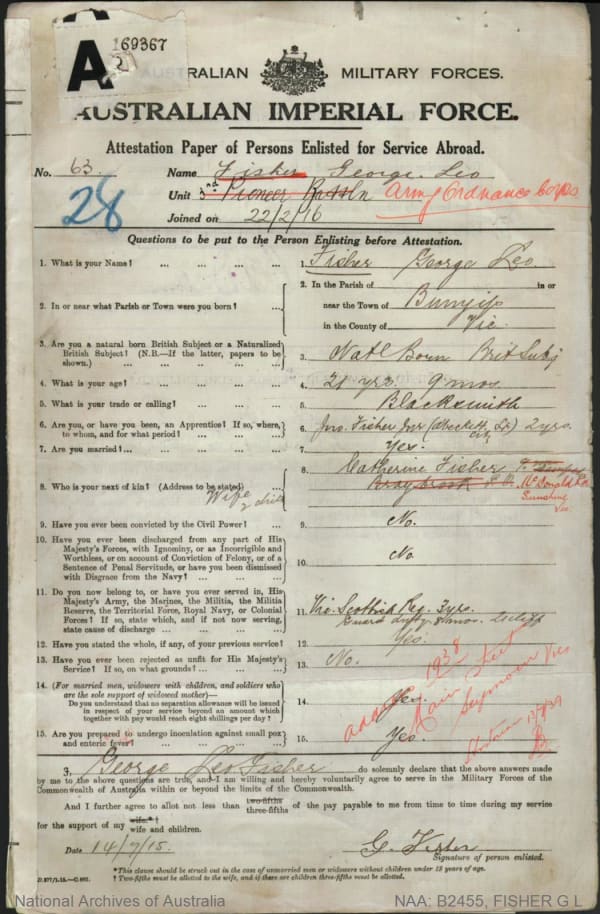 169367
A
AUSTRALIAN MILITARY FORCES.
AUSTRALIAN IMPERIAL FORCE.
Attestation Paper of Persons Enlisted for Service Abroad.
No. 63 Name Fisher George Leo
28
Unit 3rd Pioneer Battn Army Ordnance Corps
Joined on 22/2/16
Questions to be put to the Person Enlisting before Attestation.
1. What is your Name? ... ... ... ... 1. Fisher George Leo.
2. In or near what Parish or Town were you born? ... 2. In the Parish of in or
near the Town of Bunyip
in the County of Vic.
3. Are you a natural born British Subject or a Naturalized
British Subject? (N.B.—If the latter, papers to be
shown.) ... ... ... ... 3. Natl Born Brit Subj
4. What is your age? ... ... ... ... 4. 21 yrs. 9 mos
5. What is your trade or calling? ... ... ... 5. Blacksmith
6. Are you, or have you been, an Apprentice? If so, where,
to whom, and for what period? ... ... ... 6. Jno. Fisher (Abeckett St) 2yrs
City
7. Are you married? ... ... ... ... 7. Yes.
8. Who is your next of kin? (Address to be stated) 8. Catherine Fisher
Wife
2 chil
Braybrook McDonald Rd
Sunshine
Vic
9. Have you ever been convicted by the Civil Power? ... 9. No.
10. Have you ever been discharged from any part of His
Majesty's Forces, with Ignominy, or as Incorrigible and
Worthless, or on account of Conviction of Felony, or of a
Sentence of Penal Servitude, or have you been dismissed
with Disgrace from the Navy? ... ... ... 10. No
11. Do you now belong to, or have you ever served in, His
Majesty's Army, the Marines, the Militia, the Militia
Reserve, the Territorial Force, Royal Navy, or Colonial
Forces? If so, state which, and if not now serving,
state cause of discharge ... ... ... 11. Vic. Scottish Reg. 3yrs.
Guard duty 8 mos.
12. Have you stated the whole, if any, of your previous service? 12. Yes.
13. Have you ever been rejected as unfit for His Majesty's
Service? If so, on what grounds? ... ... 13. No.
14. (For married men, widowers with children, and soldiers who
are the sole support of widowed mother)—
Do you understand that no separation allowance will be issued
in respect of your service beyond an amount which
together with pay would reach eight shillings per day? 14. Yes.
15. Are you prepared to undergo inoculation against small pox
and enteric fever? ... ... ... 15. Yes.
add 1938
Main Street
Seymour Vic
I, George Leo Fisher do solemnly declare that the above answers made
by me to the above questions are true, and I am willing and hereby voluntarily agree to serve in the Military Forces of the
Commonwealth of Australia within or beyond the limits of the Commonwealth.
And I further agree to allot not less than two-fifths
three-fifths of the pay payable to me from time to time during my service
for the support of my wife.*†
wife and children.
Date 14/7/15. G. Fisher
Signature of person enlisted.
*This clause should be struck out in the case of unmarried men or widowers without children under 18 years of age.
† Two-fifths must be allotted to the wife, and if there are children three-fifths must be allotted.
National Archives of Australia NAA: B2455, FISHER G L